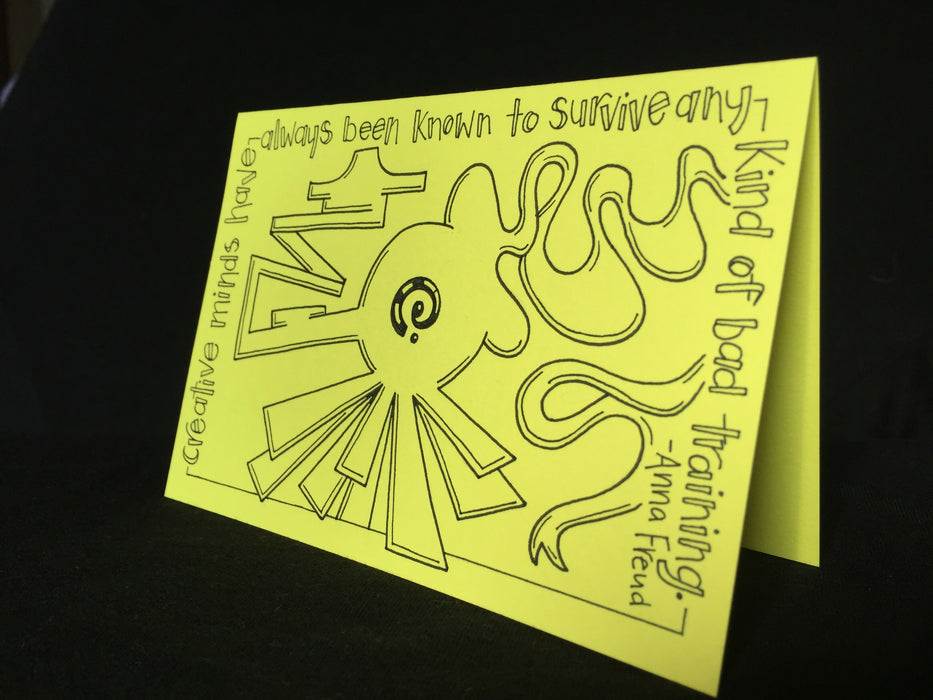 Creative minds have
always been known to survive any
kind of bad training.
-Anna Freud